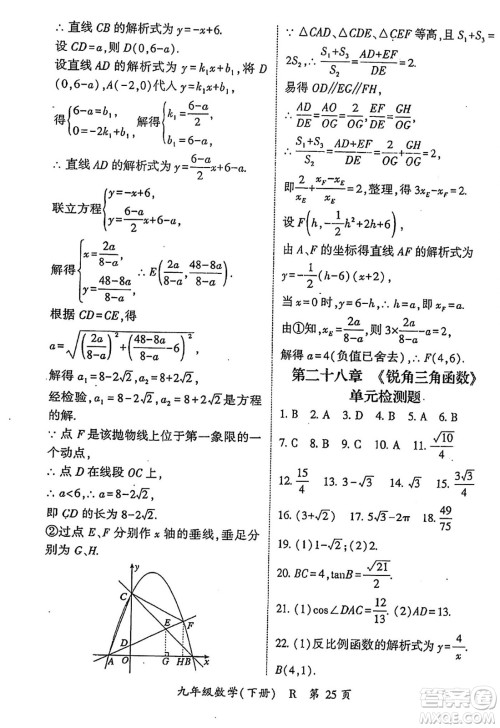 ∴ 直线 CB 的解析式为 y=-x+6.
设 CD=a,∴ D(0,6-a).
设直线 AD 的解析式为 y=k₁x+b₁,将 D
(0,6-a),A(-2,0)代入 y=k₁x+b₁,
得{6-a=b₁, 0=-2k₁+b₁, 解得{k₁=(6-a)/2, b₁=6-a.
∴ 直线 AD 的解析式为 y=(6-a)/2 x+(6-a).
联立方程{y=-x+6, y=(6-a)/2 x+(6-a).
解得{x=2a/(8-a), y=(48-8a)/(8-a). ∴ E(2a/(8-a), (48-8a)/(8-a)).
根据 CD=CE,得
a=√((2a/(8-a))²+((48-8a)/(8-a)-6)²)
解得 a₁=8-2√2,a₂=8+2√2.
经检验,a₁=8-2√2,a₂=8+2√2是方程
的解.
∵ 点 F 为该抛物线上位于第一象限的一
个动点,
∴ 点 D 在线段 OC 上,
∴ a<6,∴ a=8-2√2,
即 CD 的长为 8-2√2.
②过点 E、F 分别作 x 轴的垂线,垂足分
别为 G、H.
y
C
F
E
D
A O G H B x
∵ △CAD、△CDE、△CEF 等高,且 S₁+S₃=
2S₂,∴ (S₁+S₃)/S₂=(AD+EF)/DE=2.
易得 OD∥EG∥FH,
∴ AD/DE=AO/OG,EF/DE=GH/OG,
∴ (S₁+S₃)/S₂=(AD+EF)/DE=AO/OG+GH/OG=2.
即 2/x_E+(x_F-x_E)/x_E=2,整理,得 3x_E-x_F=2.
设 F(h,-1/2h²+2h+6).
由 A、F 的坐标得直线 AF 的解析式为
y=-1/2(h-6)(x+2).
当 x=0 时,y=6-h,∴ CD=h.
由①知,x_E=2a/(8-a),∴ 3·2a/(8-a)-a=2.
解得 a=4(负值已舍去),∴ CD=4.
第二十八章 《锐角三角函数》
单元检测题
1. B 2. D 3. A 4. A 5. A 6. B
7. C 8. D 9. C 10. B 11. √10/4
12. 15/4 13. 1-√3 14. √3 15. 3
16. (3+√3) 17. 3√3-2π 18. 4/3
19. (1)2√2 (2)0
20. BC=4,tanB=√21/2
21. (1)cos∠DAC=12/13 (2)5
22. (1)反比例函数的解析式为 y=4/x.
B(4,1).
九年级数学(下册) R 第 25 页